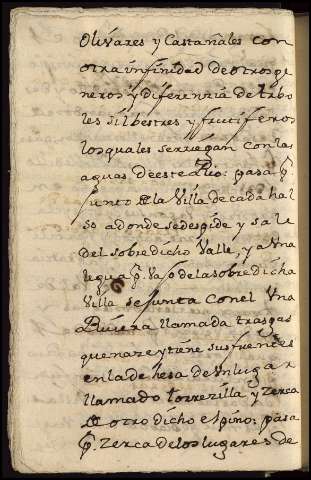 Olivares y Castañales con
otra ynfinidad de otros ge
neros y diferenzia de arbo
les silbestres y frutiferos
los quales se rriegan con las
aguas de este Rio: pasa p.
junto de la Villa de cadahal
so adonde se despide y sale
del sobredicho Valle, y a Una
legua p. vajo de la sobre dicha
Villa se junta con el Una
Riviera llamada trasgas
que naze y tiene sus fuentes
en la dehesa de Un lugar
llamado torrezilla y zerca
de otro dicho espino: pasa
p. zerca de los lugares de